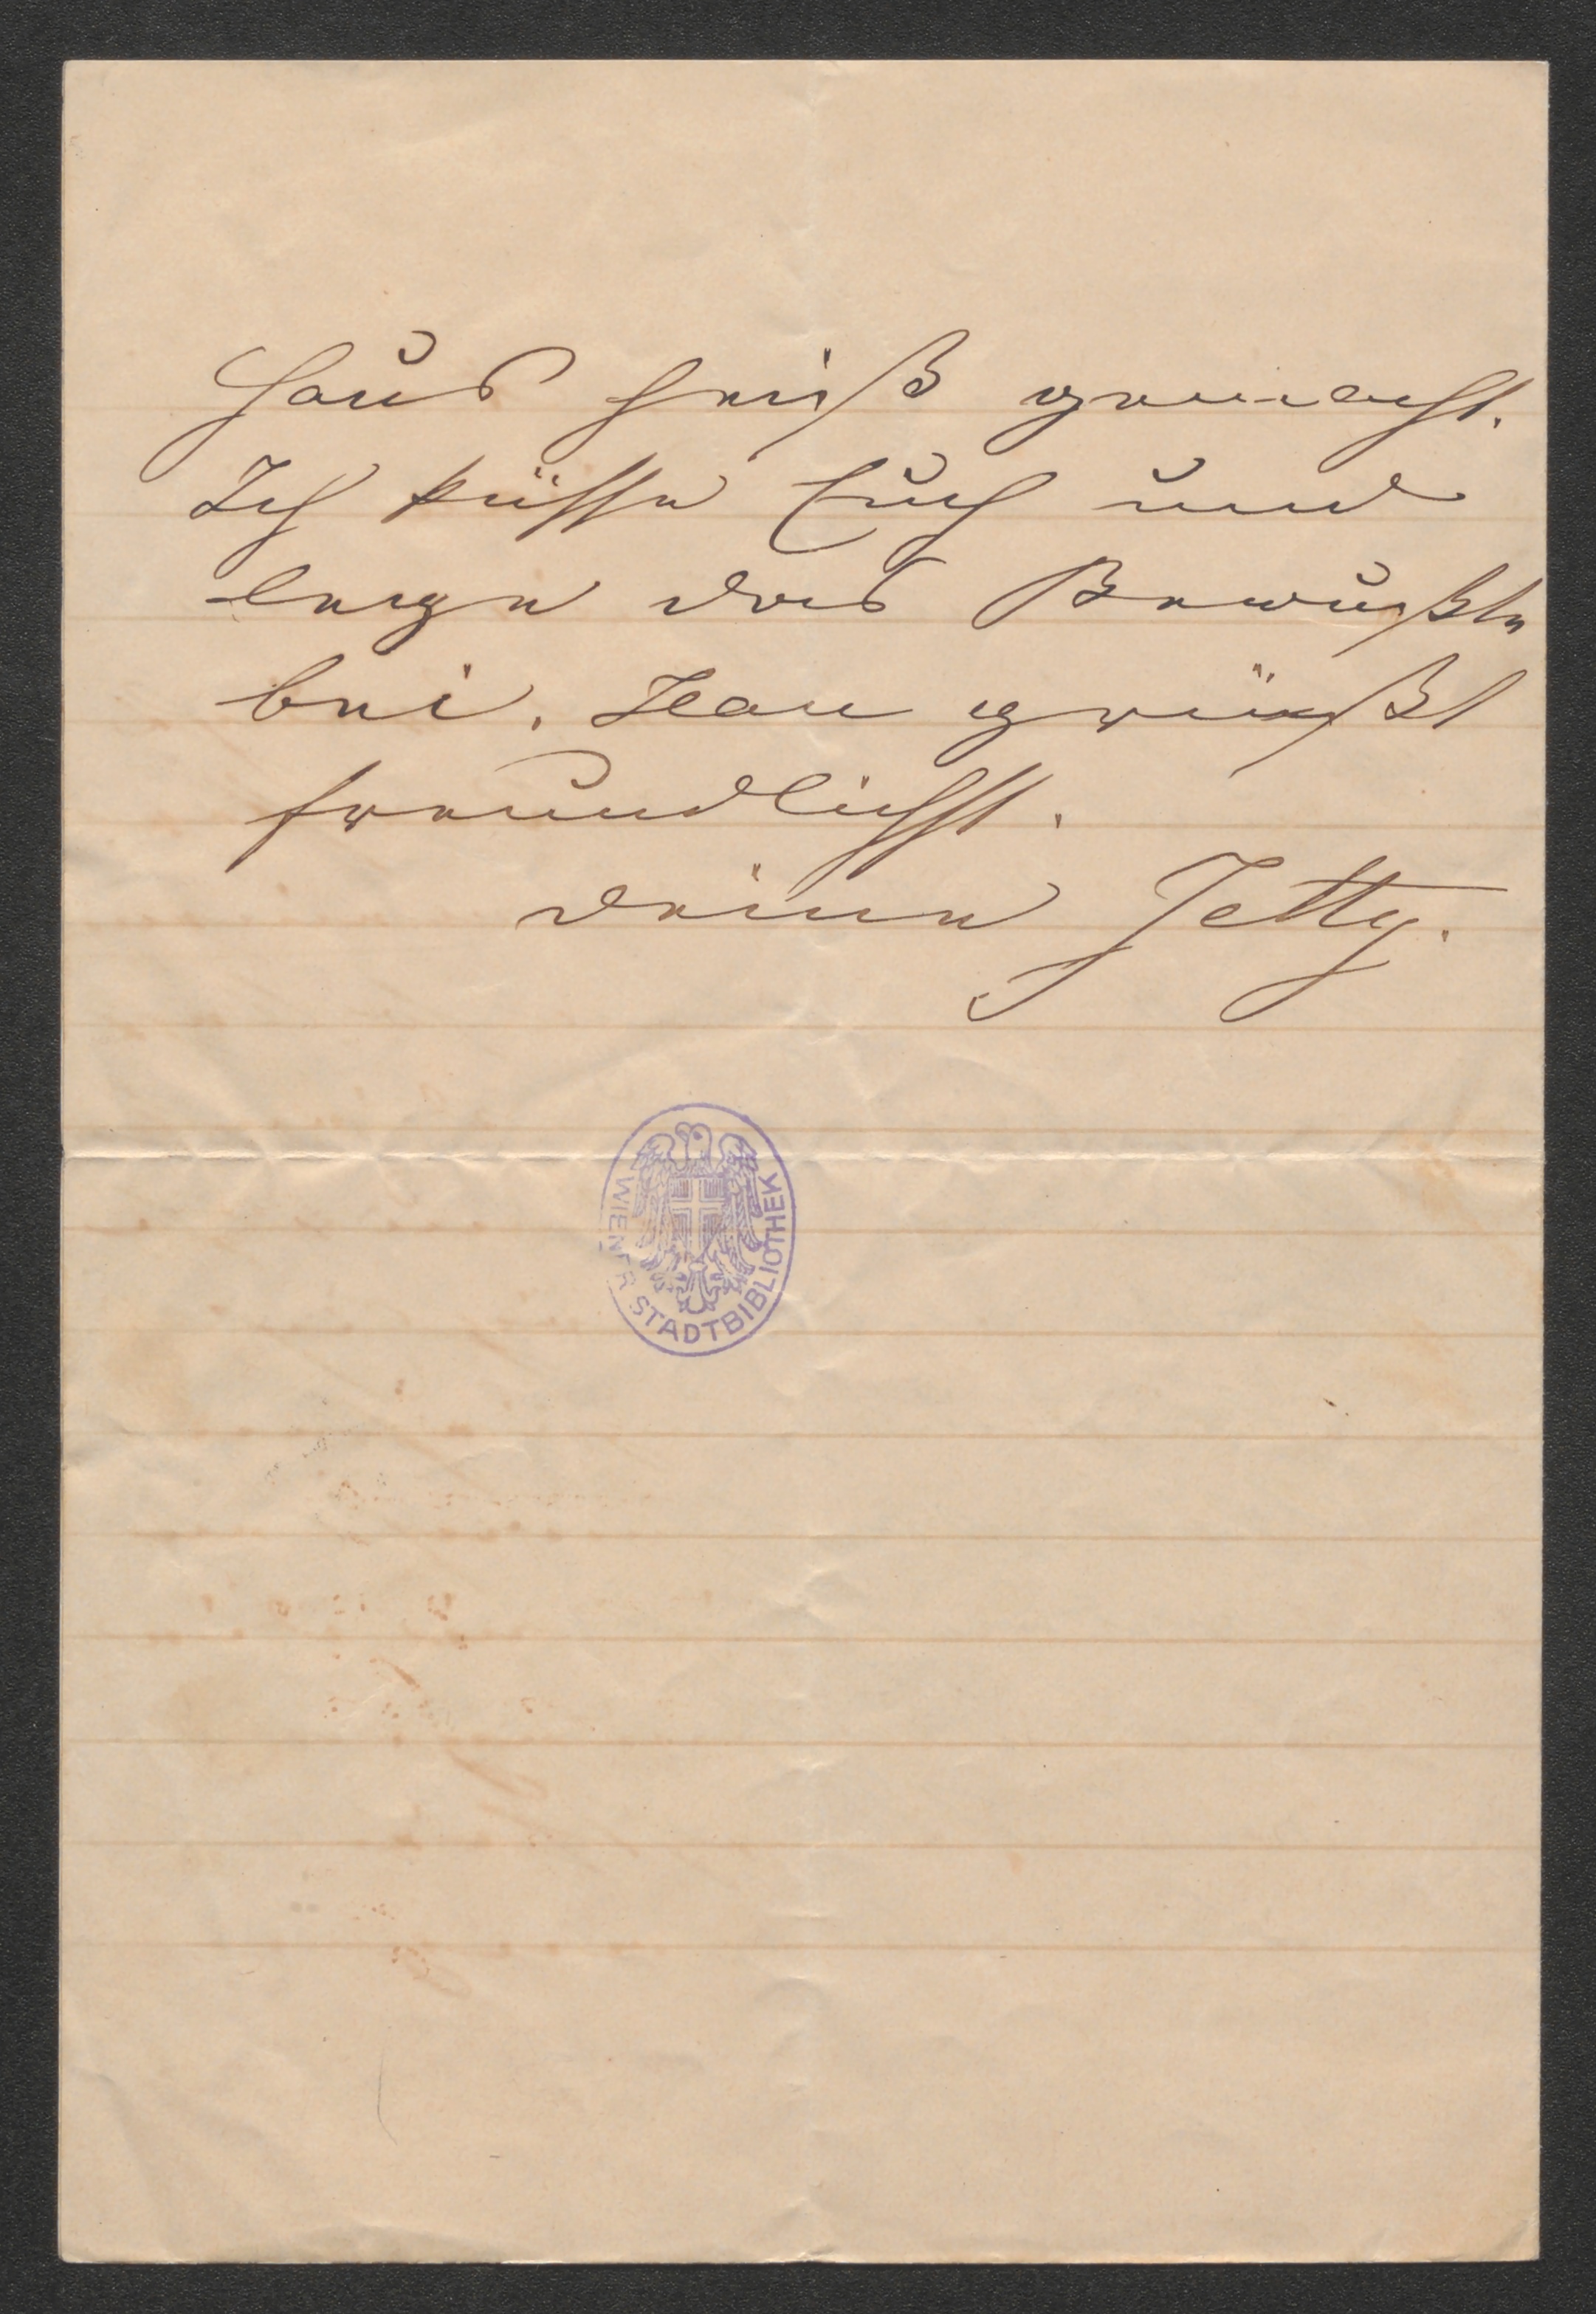 Haus heiß gemacht.
Ich küsse Euch und
lege das Bewußte
bei. Jean grüßt
freundlichst.
Deine Jetty.
WIENER STADTBIBLIOTHEK